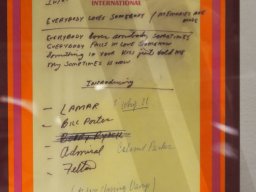 INTERNATIONAL
EVERYBODY LOVES SOMEBODY / MEMORIES ARE
MADE
EVERYBODY LOVES SOMEBODY SOMETIMES
EVERYBODY FALLS IN LOVE SOMEHOW
SOMETHING IN YOUR KISS JUST TOLD ME
MY SOMETIMES IS NOW
INTRODUCING
- LAMAR
- BILL PORTER
- Admiral Colonel Parker
- Felton